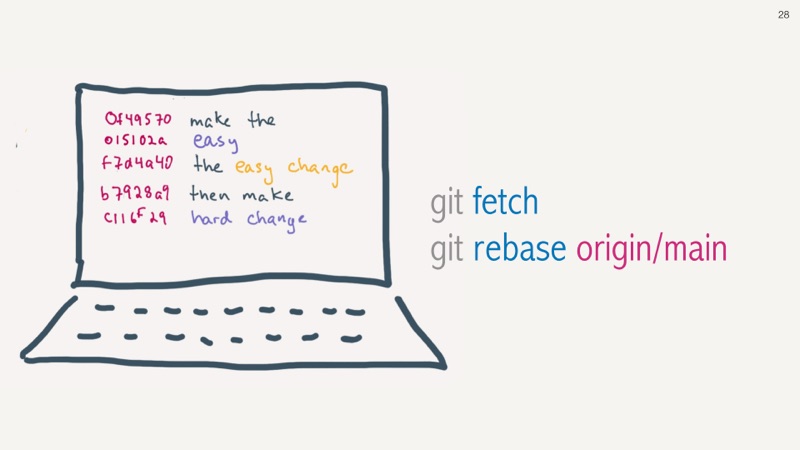 28
0f49570 make the
015102a easy
f7d4a40 the easy change
b7928a9 then make
c116f29 hard change
git fetch
git rebase origin/main